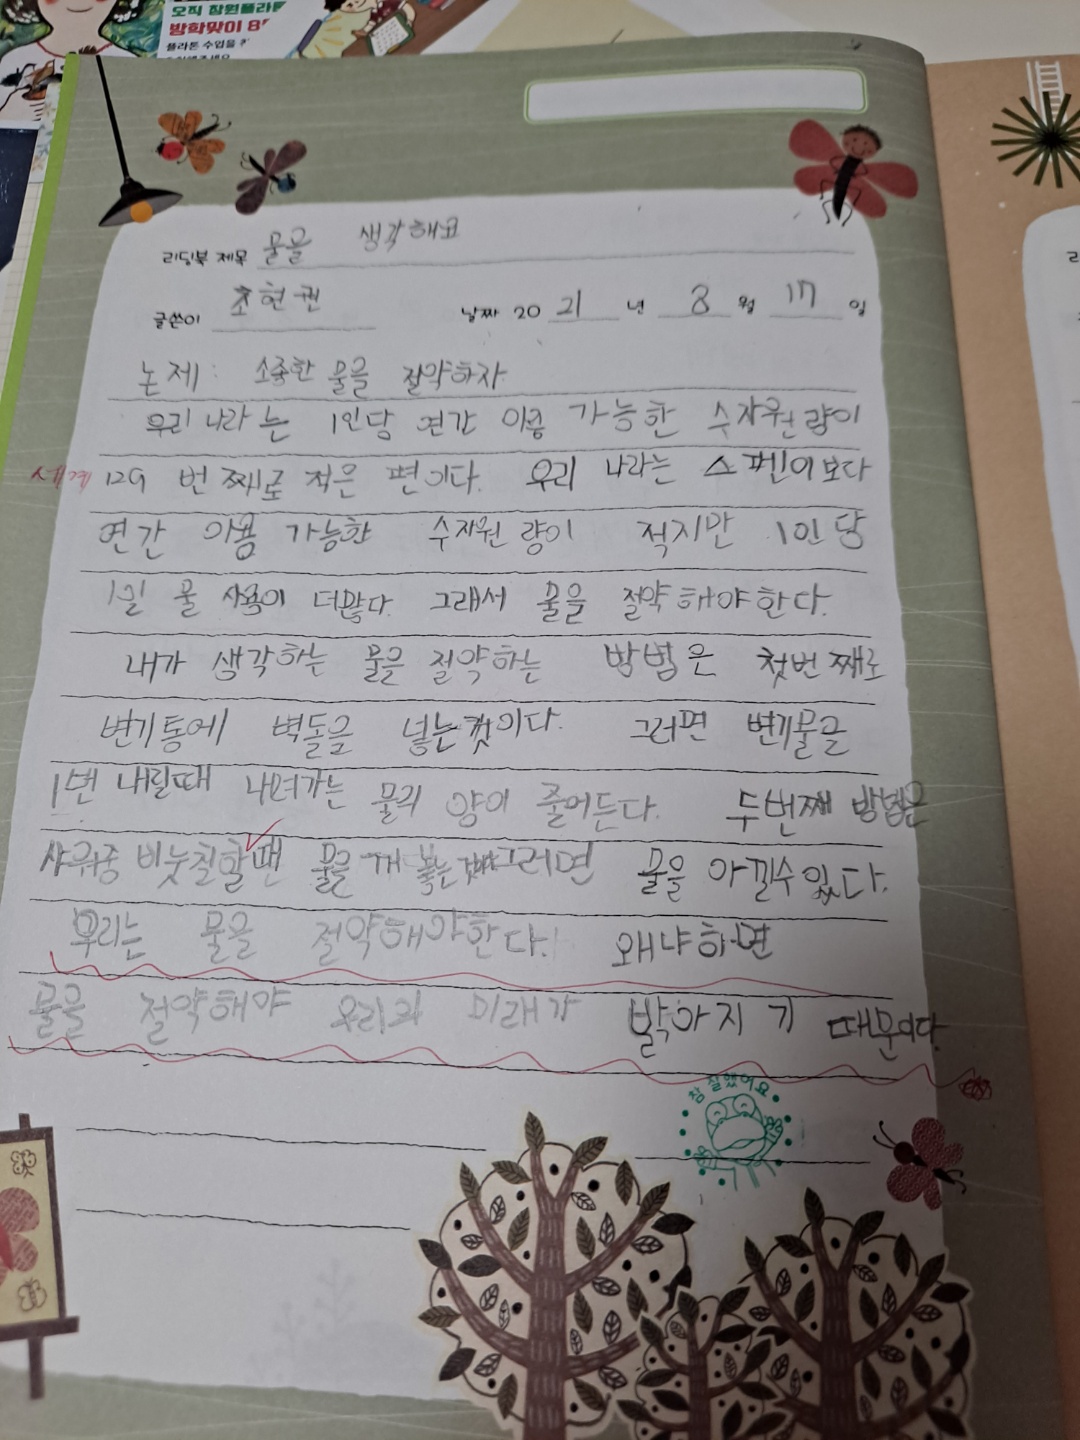 오직 참원플라톤
방학맞이 8
플라톤 수업을
리딩북 제목 물을 생각해요
글쓴이 조현권 날짜 2021년 8월 17일
논제: 소중한 물을 절약하자
우리 나라는 1인당 연간 이용 가능한 수자원 량이
세계 129 번 째로 적은 편이다. 우리 나라는 스펜인보다
연간 이용 가능한 수자원 량이 적지만 1인당
1일 물 사용이 더많다. 그래서 물을 절약해야한다.
내가 생각하는 물을 절약하는 방법은 첫번째로
변기통에 벽돌을 넣는것이다. 그러면 변기물을
1번 내릴때 내려가는 물의 양이 줄어든다. 두번째 방법은
샤워중 비눗칠할땐 물을 그러면 물을 아낄수있다.
우리는 물을 절약해야한다. 왜냐하면
물을 절약해야 우리의 미래가 밝아지기 때문이다.
참 잘했어요